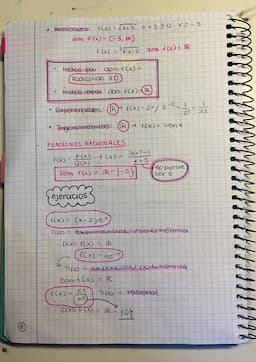 • Radicales: f(x) = √x+3  x+3 ≥ 0  x ≥ -3
dom f(x) = [-3, ∞)
f(x) = ³√x-2  dom f(x) = ℝ
• Índice par: dom f(x) =
Radicando ≥ 0
• Índice impar: dom f(x) = ℝ
• Exponenciales: ℝ → f(x) = 2ˣ
• Trigonométricas: ℝ → f(x) = sen x
FUNCIONES RACIONALES
f(x) = P(x)/Q(x)
x+5
no puede
ser 0
Dom f(x) = ℝ - {-5}
ejercicios
f(x) = (x-2)eˣ
Tipo = exponencial/polinómica
Dom f(x) = ℝ
Tipo = exponencial/polinómica
Dom f(x) = ℝ
Tipo = racional
Dom f(x) = ℝ - {0}